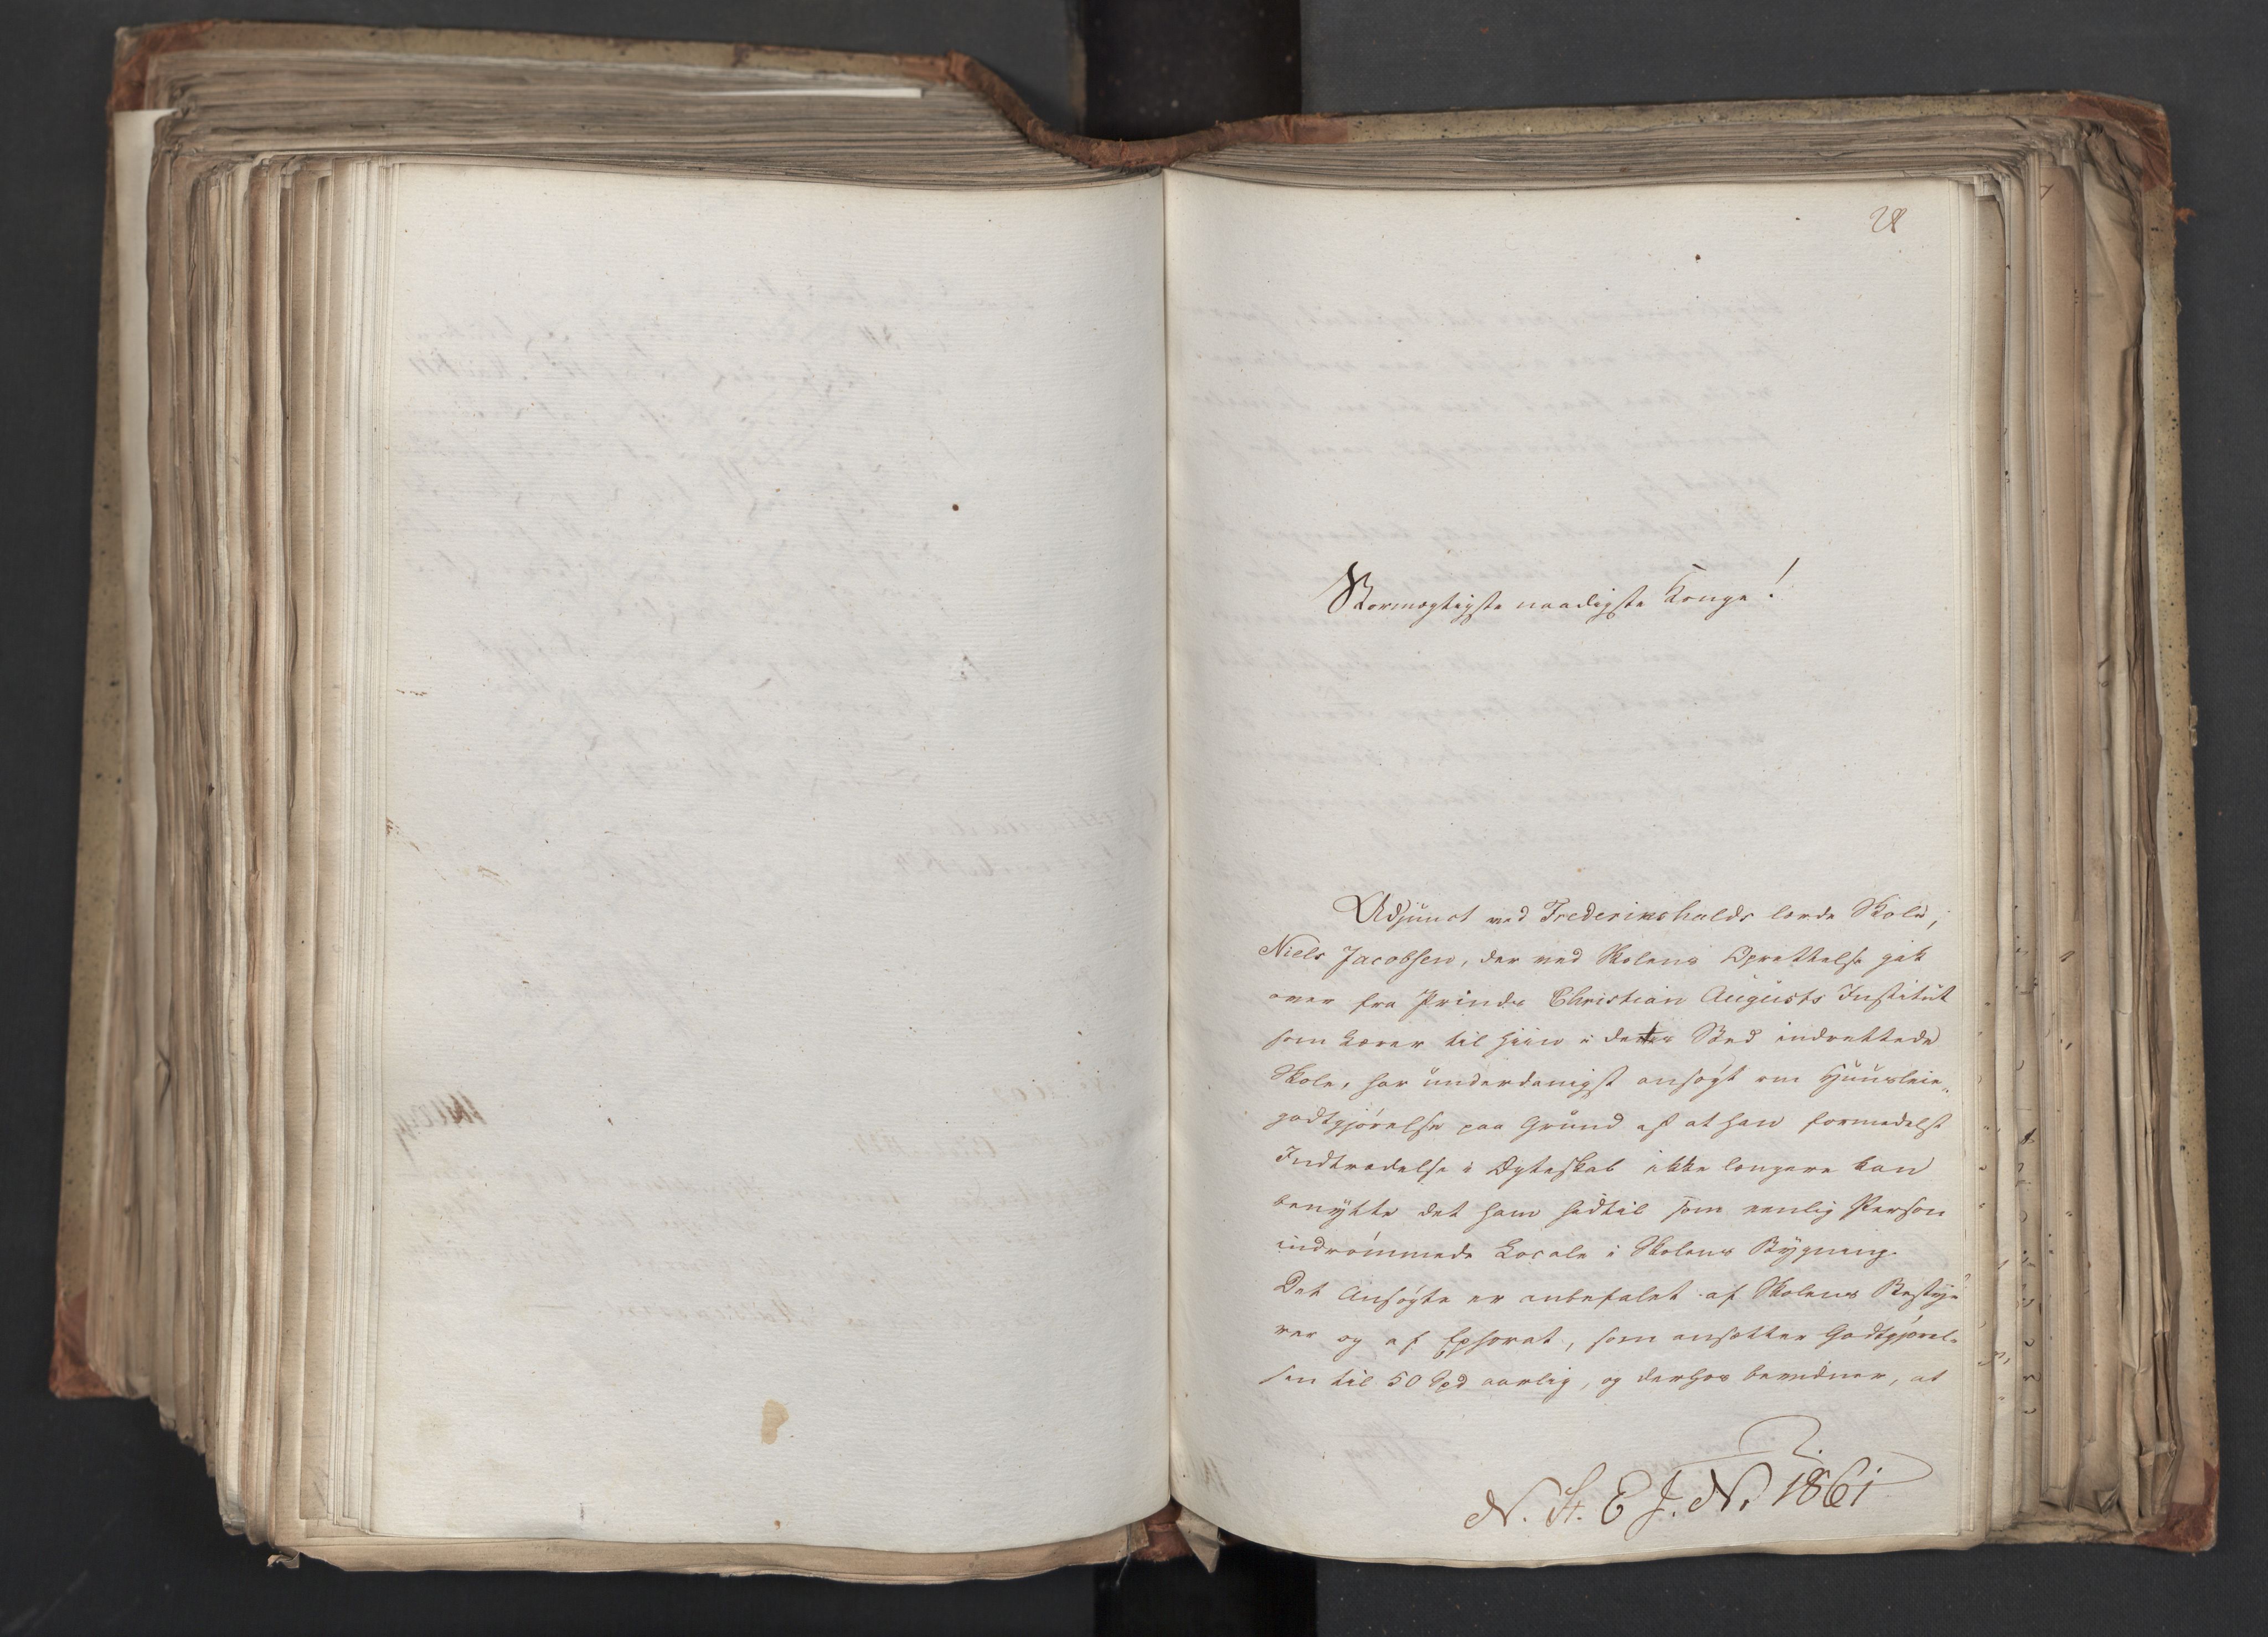 28
Stormægtigste naadigste Konge!
Adjunct ved Frederikshalds lærde Skole,
Niels Jacobsen, der ved Skolens Oprettelse gik
over fra Prinds Christian Augusts Institut
som Lærer til hiin i dettes Sted indrettede
Skole, har underdanigst ansøgt om Huusleie-
godtgjørelse paa Grund af at han formedelst
Indtrædelse i Ægteskab ikke længere kan
benytte det ham hidtil som eenlig Person
indrømmede Locale i Skolens Bygning.
Det Ansøgte er anbefalet af Skolens Besty-
rer og af Ephorat, som ansætter Godtgjørel-
sen til 50 Spd aarlig, og derhos bevidner, at
N. St. E J. No 1861